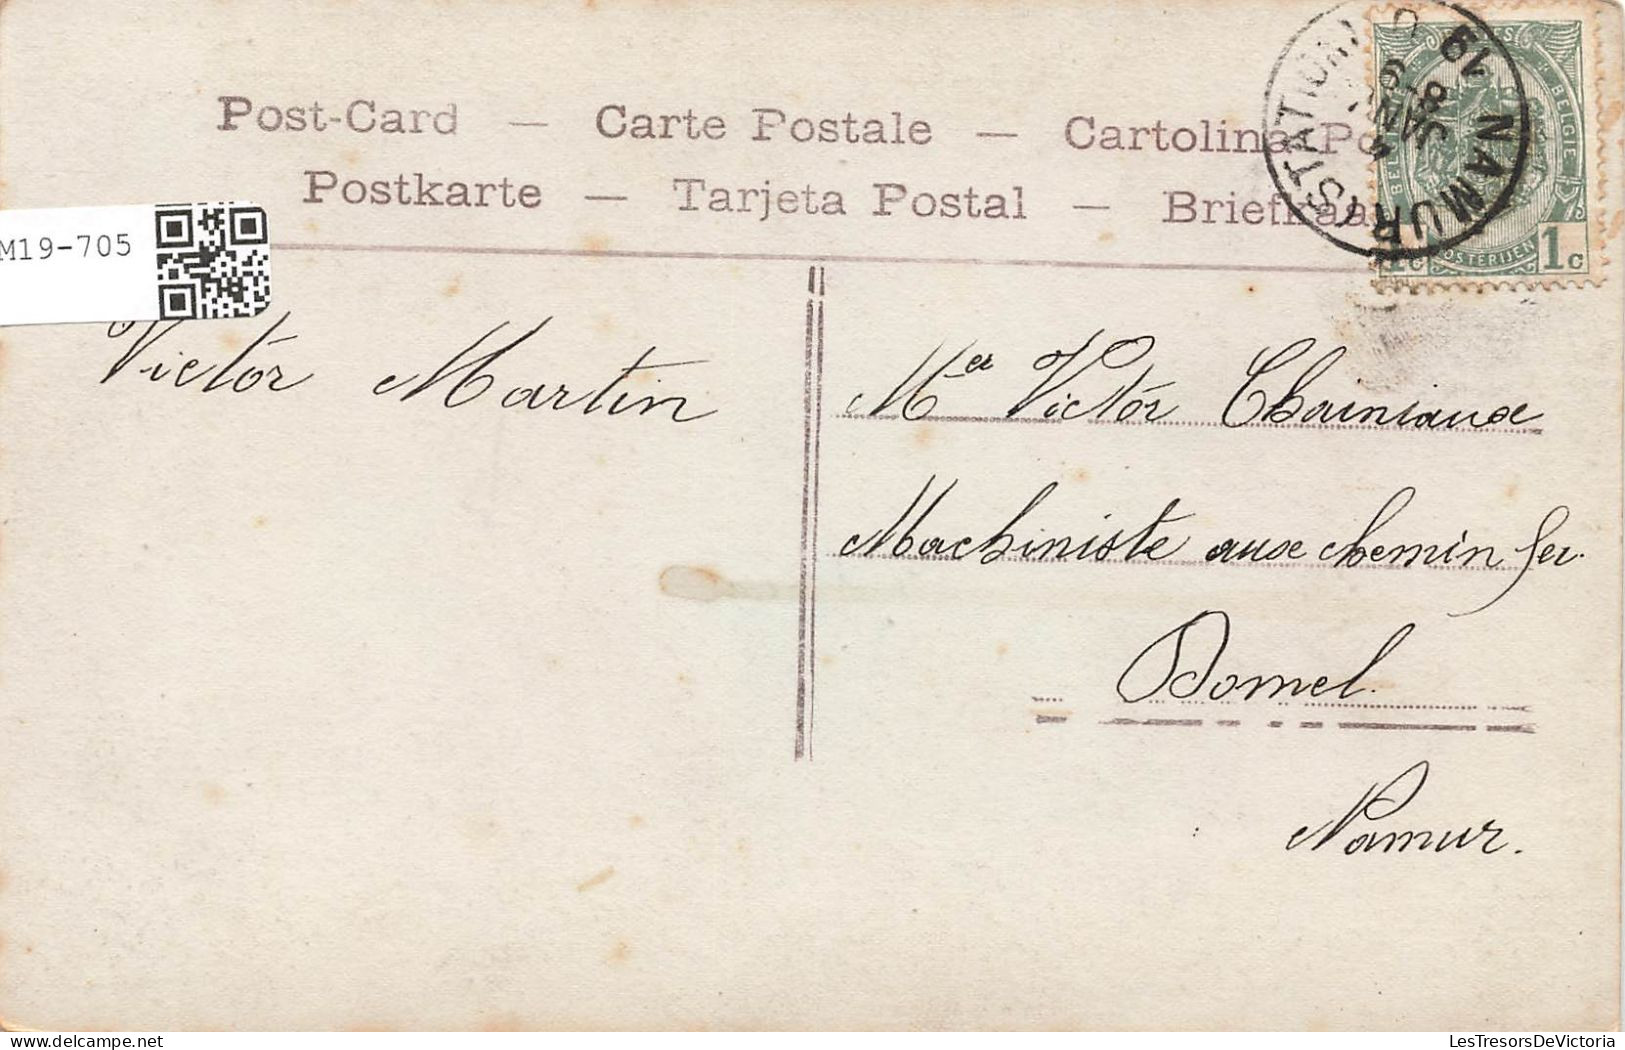 Post-Card — Carte Postale — Cartolina Po
Postkarte — Tarjeta Postal — Briefkaa
M19-705
NAMUR (STATION)
8
JANV
19
BELGIE
POSTERIJEN
1c 1c
Victor Martin
Mer Victor Chainiaux
Machiniste aux chemin fer.
Bomel.
Namur.
LesTresorsDeVictoria